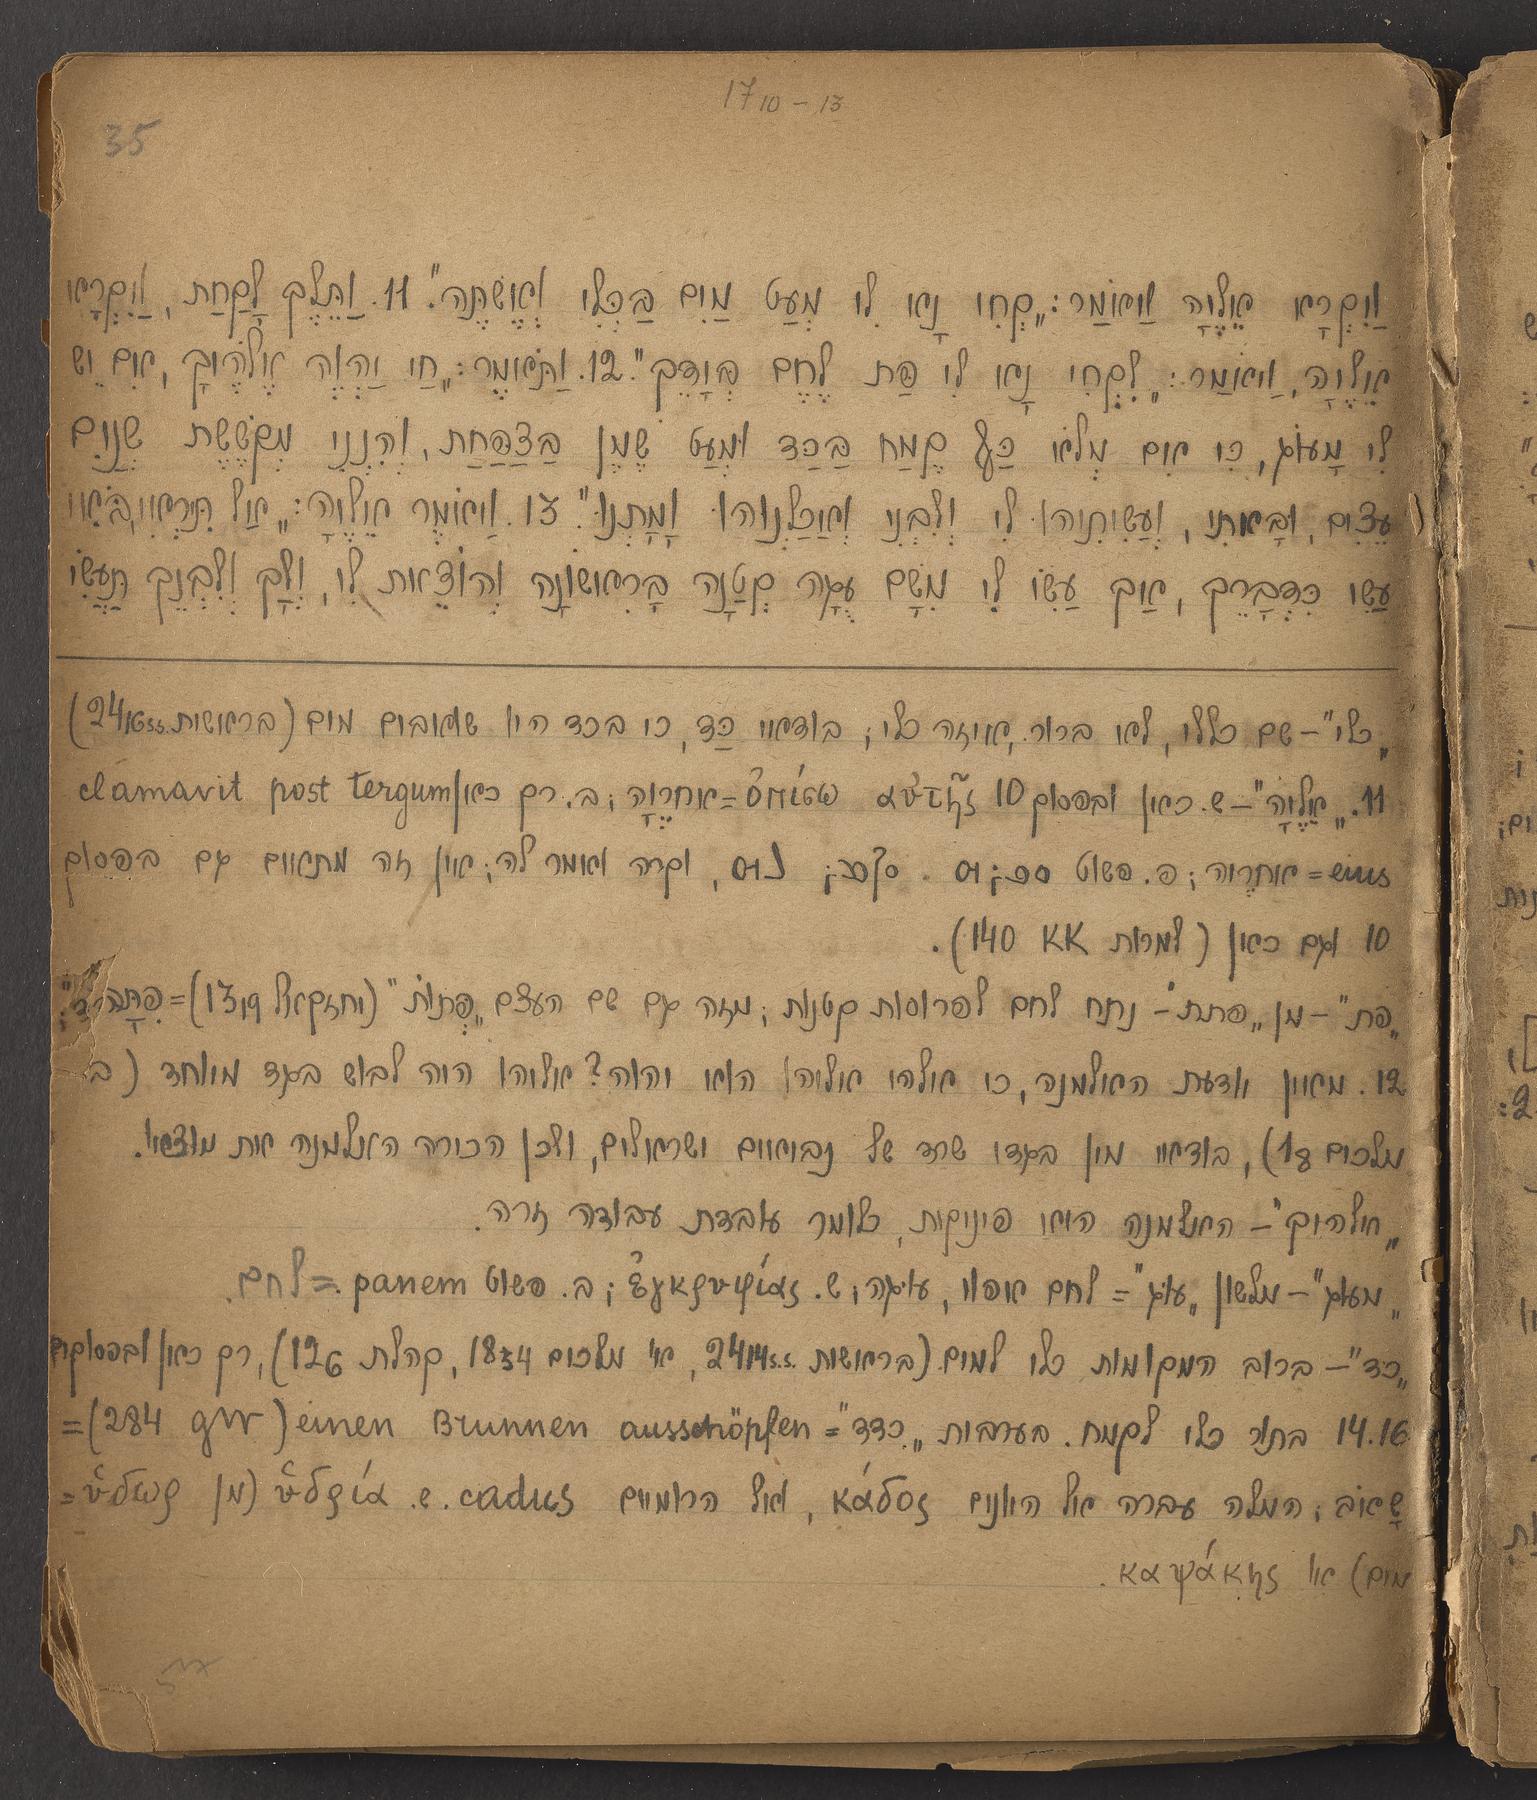 17 10-13
35
וַיִּקְרָא אֵלֶיהָ וַיֹּאמַר: „קְחִי נָא לִי מְעַט מַיִם בַּכְּלִי וְאֶשְׁתֶּה". 11. וַתֵּלֶךְ לָקַחַת, וַיִּקְרָא
אֵלֶיהָ, וַיֹּאמַר: „לִקְחִי נָא לִי פַּת לֶחֶם בְּיָדֵךְ". 12. וַתֹּאמֶר: „חַי יַהְוֶה אֱלֹהֶיךָ, אִם יֵשׁ
לִי מָעוֹג, כִּי אִם מְלֹא כַּף קֶמַח בַּכַּד וּמְעַט שֶׁמֶן בַּצַּפַּחַת, וְהִנְנִי מְקֹשֶׁשֶׁת שְׁנַיִם
עֵצִים, וּבָאתִי, וַעֲשִׂיתִיהוּ לִי וְלִבְנִי וַאֲכַלְנוּהוּ וָמָתְנוּ". 13. וַיֹּאמֶר אֵלֶיהָ: „אַל תִּירְאִי, בֹּאִי
עֲשִׂי כִדְבָרֵךְ, אַךְ עֲשִׂי לִי מִשָּׁם עֻגָה קְטַנָּה בָרִאשׁוֹנָה וְהוֹצֵאת לִי, וְלָךְ וְלִבְנֵךְ תַּעֲשִׂי
„כלי" – שם כללי, לא ברור, איזה כלי; בודאי כַּד, כי בכד היו שואבים מים (בראשית 24 16ss.)
11. „אֵלֶיהָ" – ש. כאן ובפסוק 10 ὀπίσω αὐτῆς = אחריהָ; ב. רק כאן clamavit post tergum
eius = אחריה; פ. פשוט, וקרה ואמר לה; אין זה מתאים גם בפסוק
10 וגם כאן (למרות KK 140).
„פת" – מן „פתת" – נתח לחם לפרוסות קטנות; מזה גם שם העצם „פְּתוֹת" (יחזקאל 13 19) =
12. מאין ידעת האלמנה, כי אלהי אליהו הוא יהוה? אליהו היה לבוש בגד מיוחד (ב
מלכים 1 8), בודאי מין בגדי שרד של נביאים ישראלים, ולכן הכירה האלמנה את מוצאו.
„אלהיך" – האלמנה היא פיניקית, כלומר עובדת עבודה זרה.
„מעוג" – מלשון „עוג" = לחם אפוי, עוגה; ש. ἐγκρυφίας; ב. פשוט panem = לחם.
„כד" – ברוב המקומות כלי למים (בראשית 24 14s.s., א' מלכים 18 34, קהלת 12 6), רק כאן ובפסוקים
14. 16 בתור כלי לקמח. בערבית „כדד" = einen Brunnen ausschöpfen (284 gW) =
שָׁאוֹב; המלה עברה אל היונים κάδος, ואל הרומיים cadus. ש. ὑδρία (מן ὕδωρ =
מים) או καψάκης.